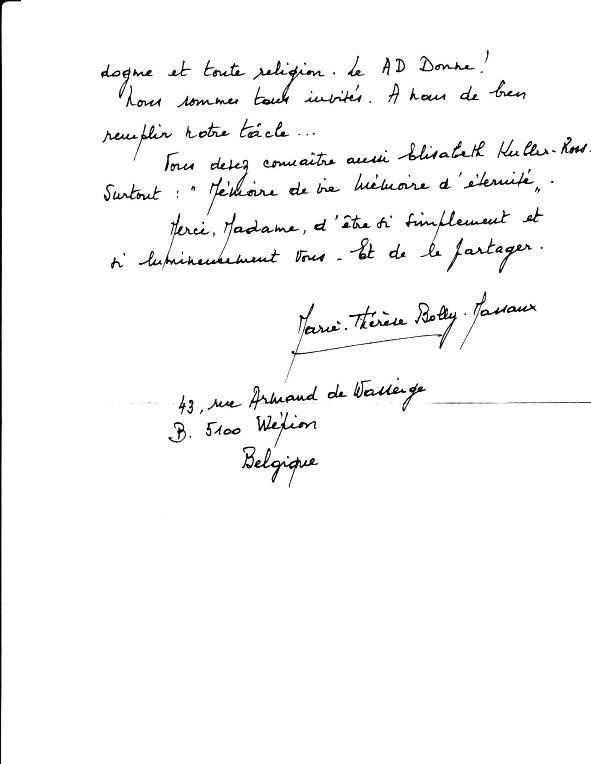 dogme et toute religion. Le AD Donne!
Nous sommes tous invités. A nous de bien
remplir notre tâcle...
Vous devez connaître aussi Elisabeth Kubler-Ross.
Surtout : "Mémoire de vie Mémoire d'éternité".
Merci, Madame, d'être si simplement et
si lumineusement Vous. Et de le partager.
Marie-Thérèse Bolly-Massaux
43, rue Armand de Wasseige
B. 5100 Wépion
Belgique